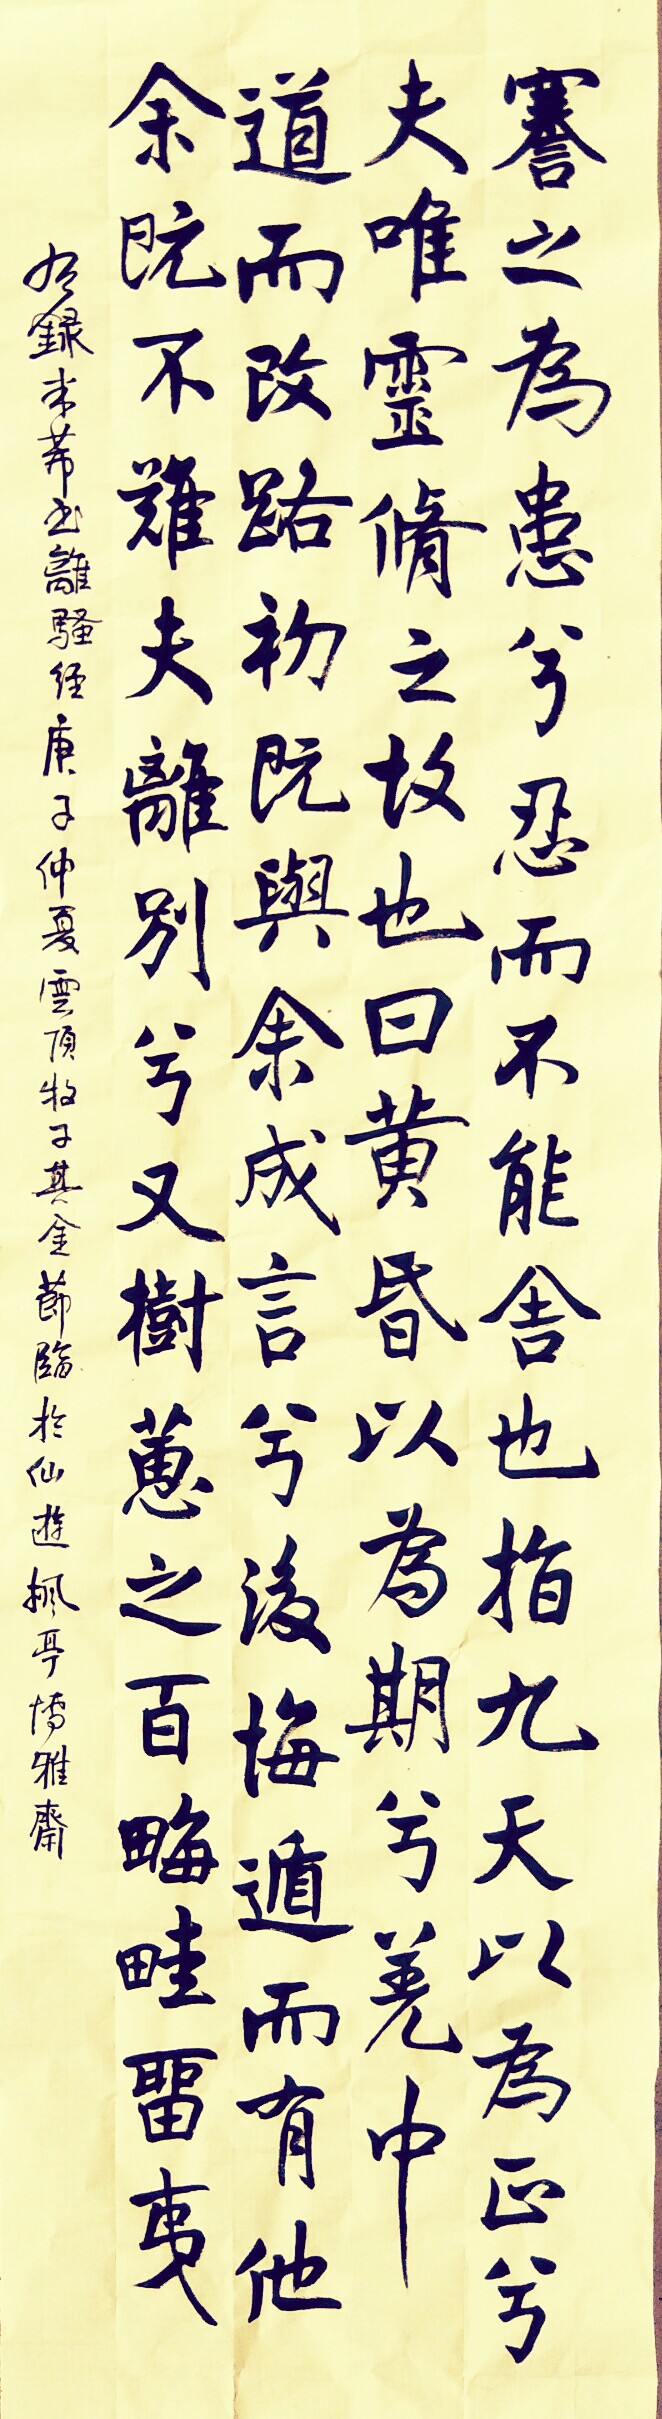 謇之為患兮忍而不能舍也指九天以為正兮
夫唯靈脩之故也曰黃昏以為期兮羌中
道而改路初既與余成言兮後悔遁而有他
余既不難夫離別兮又樹蕙之百畮畦留夷
右錄米芾書離騷經庚子仲夏雲頂牧子其金節臨於仙遊楓亭博雅齋